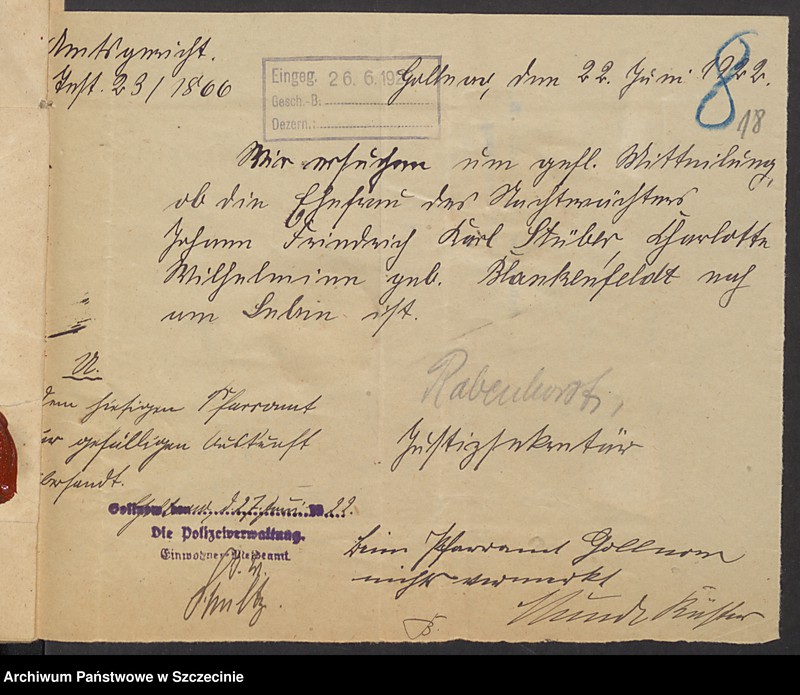 Amtsgericht.
Test. 23/1866
Eingeg. 26. 6. 192
Gesch.-B.:
Dezern.:
Gollnow, den 22. Juni 1922.
8
18
Wir ersuchen um gefl. Mitteilung,
ob die Ehefrau des Nachtwächters
Johann Friedrich Karl Stüber, Charlotte
Wilhelmine geb. Blankenfeldt noch
am Leben ist.
Rabenhorst,
Justizsekretär
U.
dem hiesigen Pfarramt
zur gefälligen Auskunft
übersandt.
Gollnow, den 27. Juni 1922.
Die Polizeiverwaltung.
Einwohner-Meldeamt
Schultz.
Beim Pfarramt Gollnow
nichts vermerkt
Küster
Archiwum Państwowe w Szczecinie